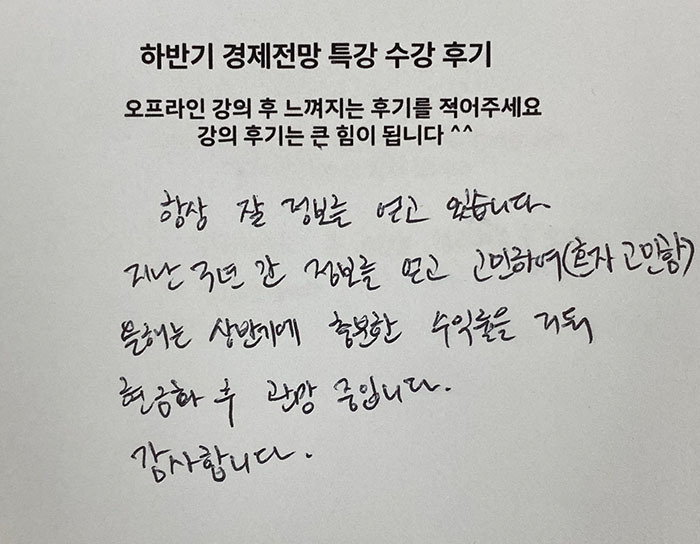 하반기 경제전망 특강 수강 후기
오프라인 강의 후 느껴지는 후기를 적어주세요
강의 후기는 큰 힘이 됩니다 ^^
항상 잘 정보를 얻고 있습니다.
지난 3년 간 정보를 얻고 고민하여(혼자 고민함)
올해는 상반기에 충분한 수익률을 거둬
현금화 후 관망 중입니다.
감사합니다.